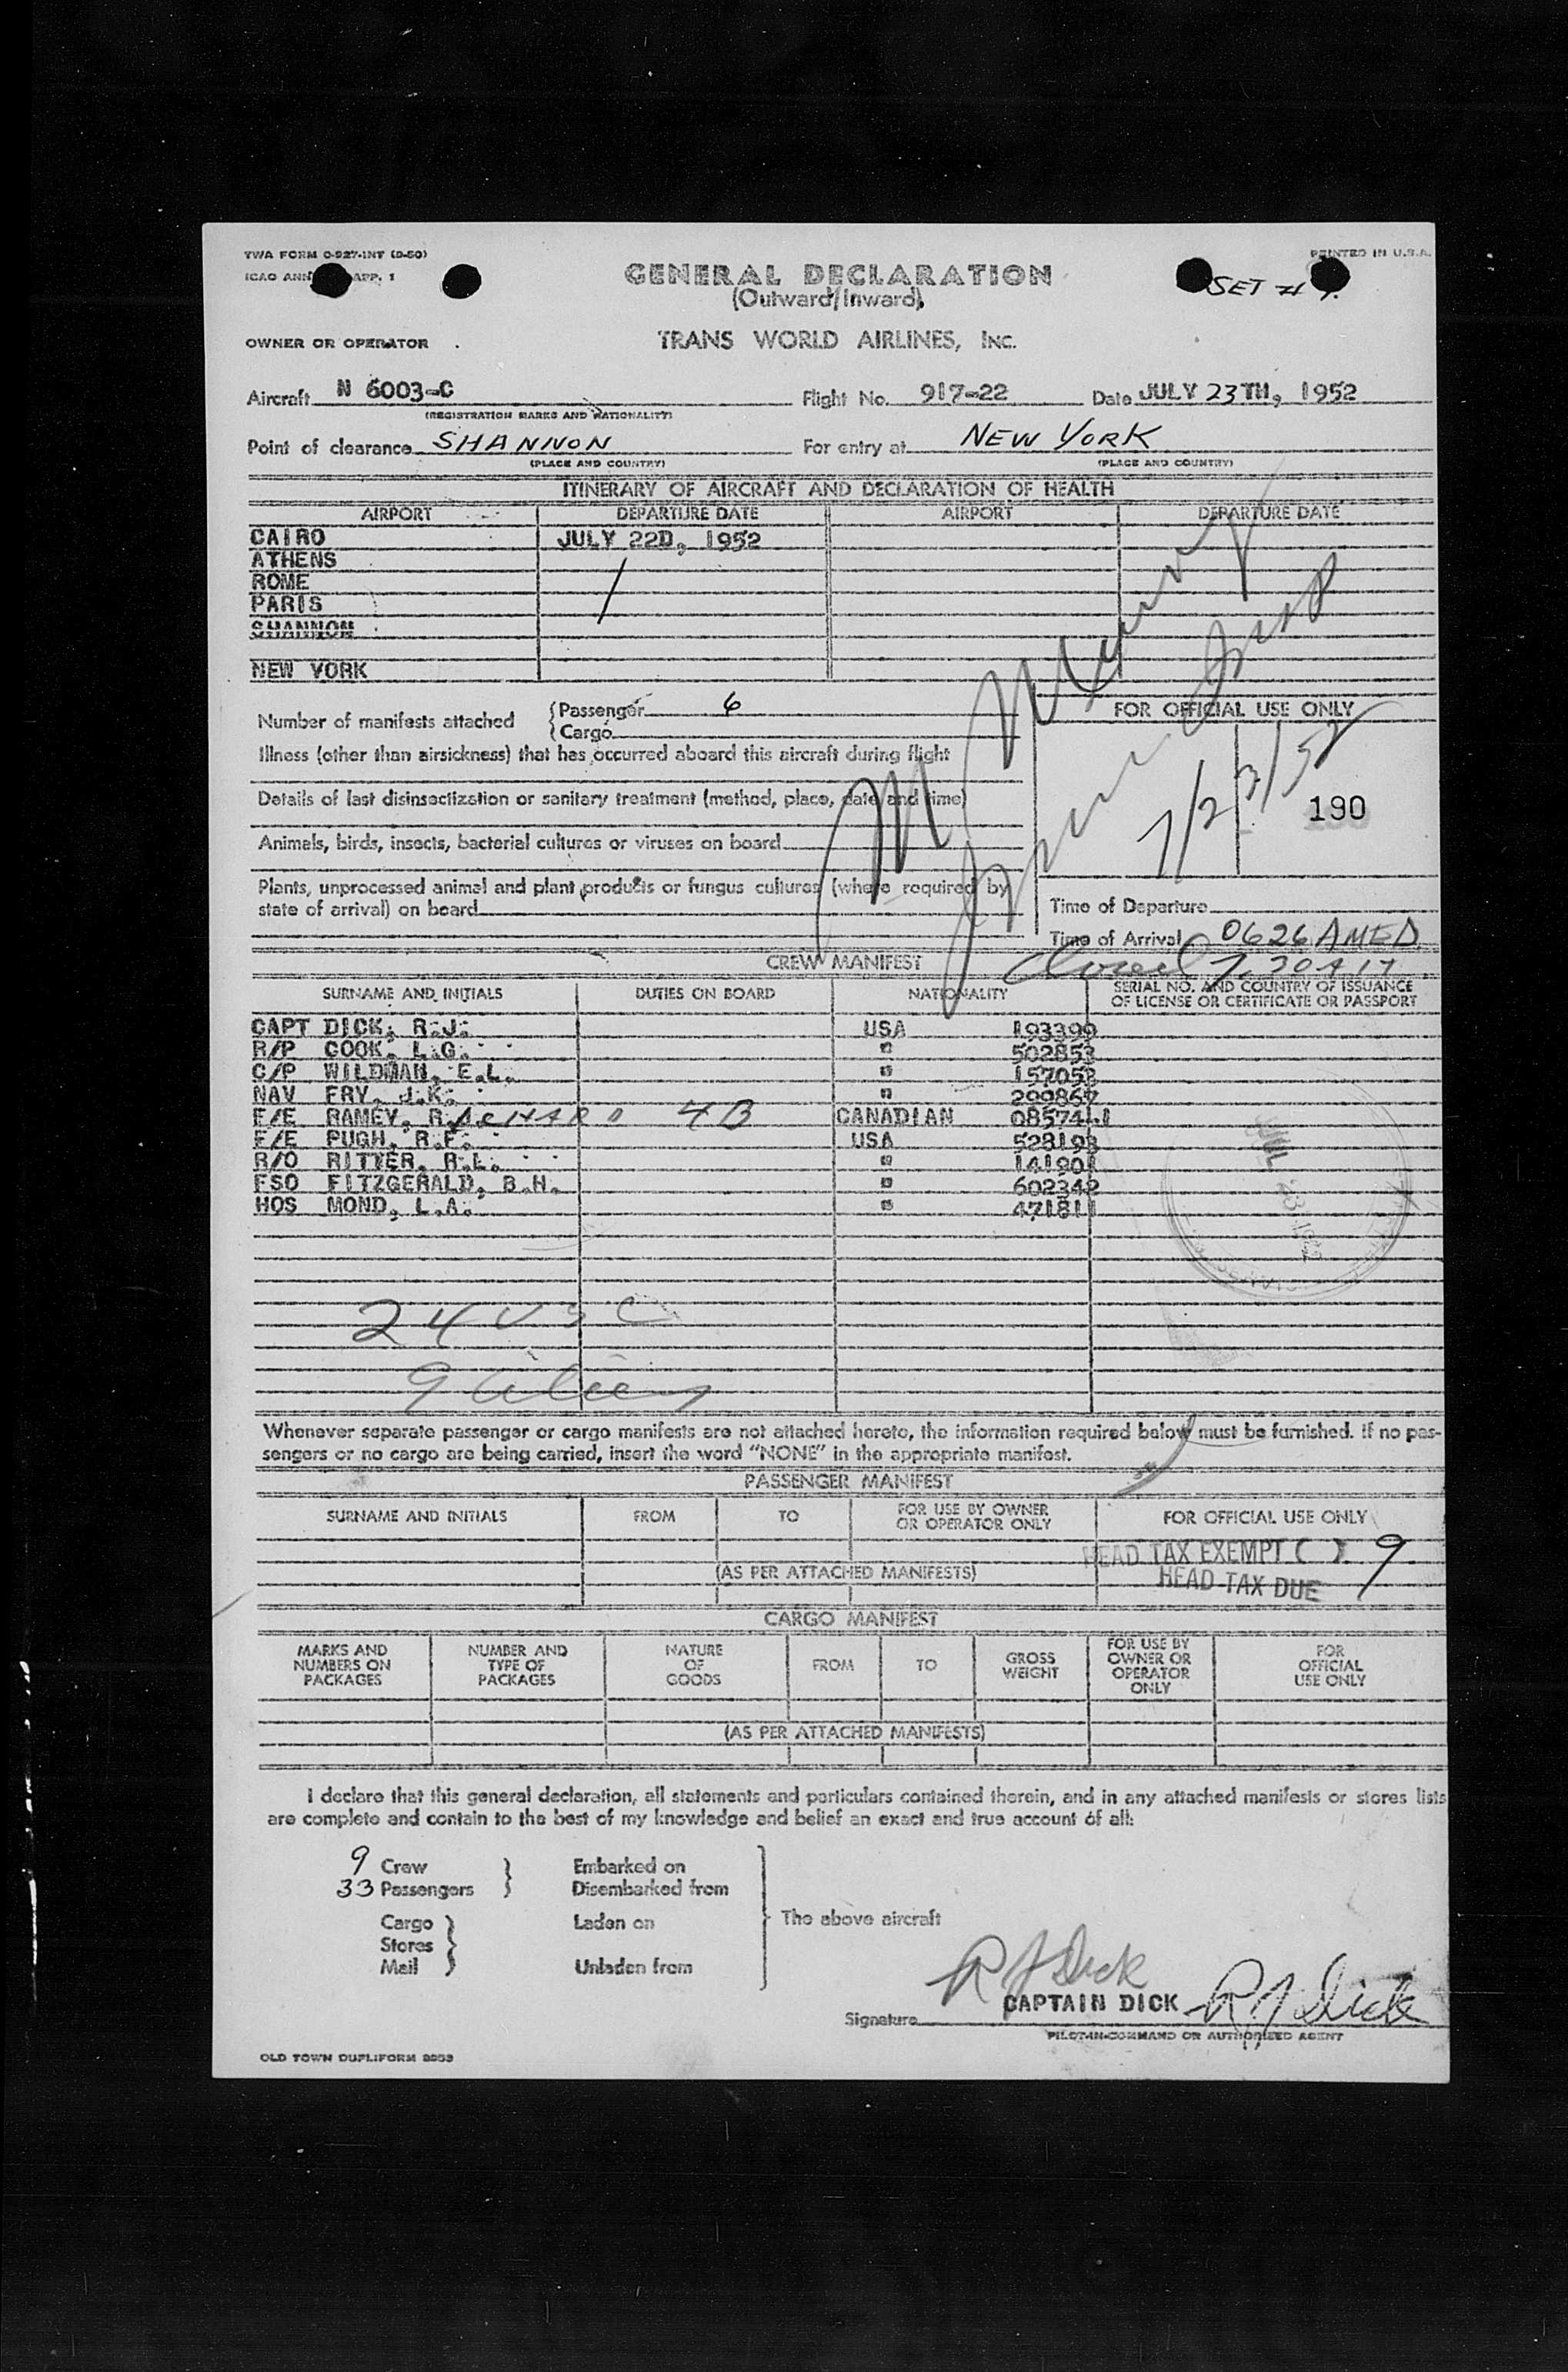 TWA FORM O-927-INT (9-50)
PRINTED IN U.S.A.
ICAO APP. 1
SET #
GENERAL DECLARATION
(Outward/Inward)
OWNER OR OPERATOR
TRANS WORLD AIRLINES, INC.
Aircraft N 6003-C Flight No. 917-22 Date JULY 23TH, 1952
(REGISTRATION MARKS AND NATIONALITY)
Point of clearance SHANNON For entry at NEW YORK
(PLACE AND COUNTRY) (PLACE AND COUNTRY)
ITINERARY OF AIRCRAFT AND DECLARATION OF HEALTH
AIRPORT DEPARTURE DATE AIRPORT DEPARTURE DATE
CAIRO JULY 22D, 1952
ATHENS
ROME
PARIS
SHANNON
NEW YORK
Number of manifests attached Passenger 6
Cargo
FOR OFFICIAL USE ONLY
7/23/52
190
Illness (other than airsickness) that has occurred aboard this aircraft during flight
Details of last disinsectization or sanitary treatment (method, place, date and time)
Animals, birds, insects, bacterial cultures or viruses on board
Plants, unprocessed animal and plant products or fungus cultures (where required by
state of arrival) on board
Time of Departure
Time of Arrival 0626 AMED
Closed 7.30 AM
CREW MANIFEST
SURNAME AND INITIALS DUTIES ON BOARD NATIONALITY SERIAL NO. AND COUNTRY OF ISSUANCE
OF LICENSE OR CERTIFICATE OR PASSPORT
CAPT DICK, R.J. USA 193399
R/P COOK, L.G. " 502853
C/P WILDMAN, E.L. " 157053
NAV FRY, J.K. " 299867
F/E RAMEY, RICHARD 4B CANADIAN
F/E PUGH, R.F. USA 528193
R/O RITTER, R.L. " 141901
FSO FITZGERALD, B.H. " 602342
HOS MOND, L.A. " 471811
JUL 23 1952
24 USC
9 aliens
Whenever separate passenger or cargo manifests are not attached hereto, the information required below must be furnished. If no pas-
sengers or no cargo are being carried, insert the word "NONE" in the appropriate manifest.
PASSENGER MANIFEST
SURNAME AND INITIALS FROM TO FOR USE BY OWNER
OR OPERATOR ONLY FOR OFFICIAL USE ONLY
HEAD TAX EXEMPT ( ) 9
(AS PER ATTACHED MANIFESTS)
HEAD TAX DUE
CARGO MANIFEST
MARKS AND
NUMBERS ON
PACKAGES
NUMBER AND
TYPE OF
PACKAGES
NATURE
OF
GOODS
FROM
TO
GROSS
WEIGHT
FOR USE BY
OWNER OR
OPERATOR
ONLY
FOR
OFFICIAL
USE ONLY
(AS PER ATTACHED MANIFESTS)
I declare that this general declaration, all statements and particulars contained therein, and in any attached manifests or stores lists
are complete and contain to the best of my knowledge and belief an exact and true account of all:
9 Crew Embarked on
33 Passengers Disembarked from
Cargo Laden on The above aircraft
Stores
Mail Unladen from
R J Dick
Signature CAPTAIN DICK R J Dick
PILOT-IN-COMMAND OR AUTHORIZED AGENT
OLD TOWN DUPLIFORM